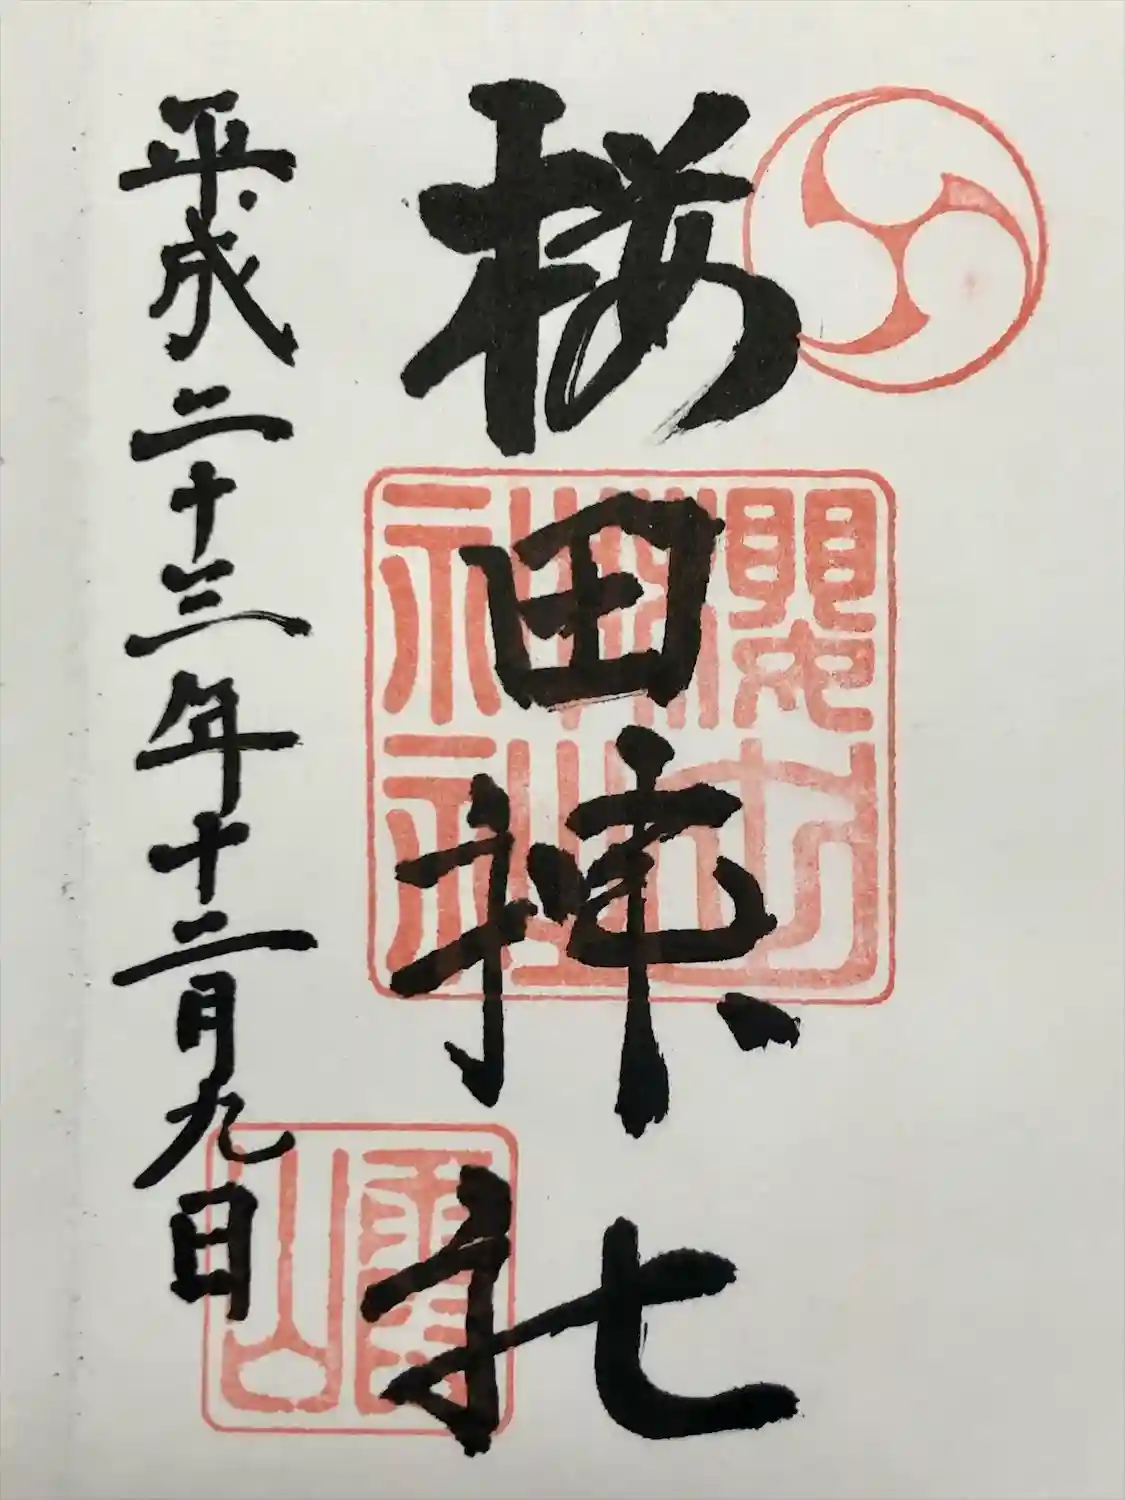 桜田神社
平成二十三年十二月九日
櫻田
神社
霞山